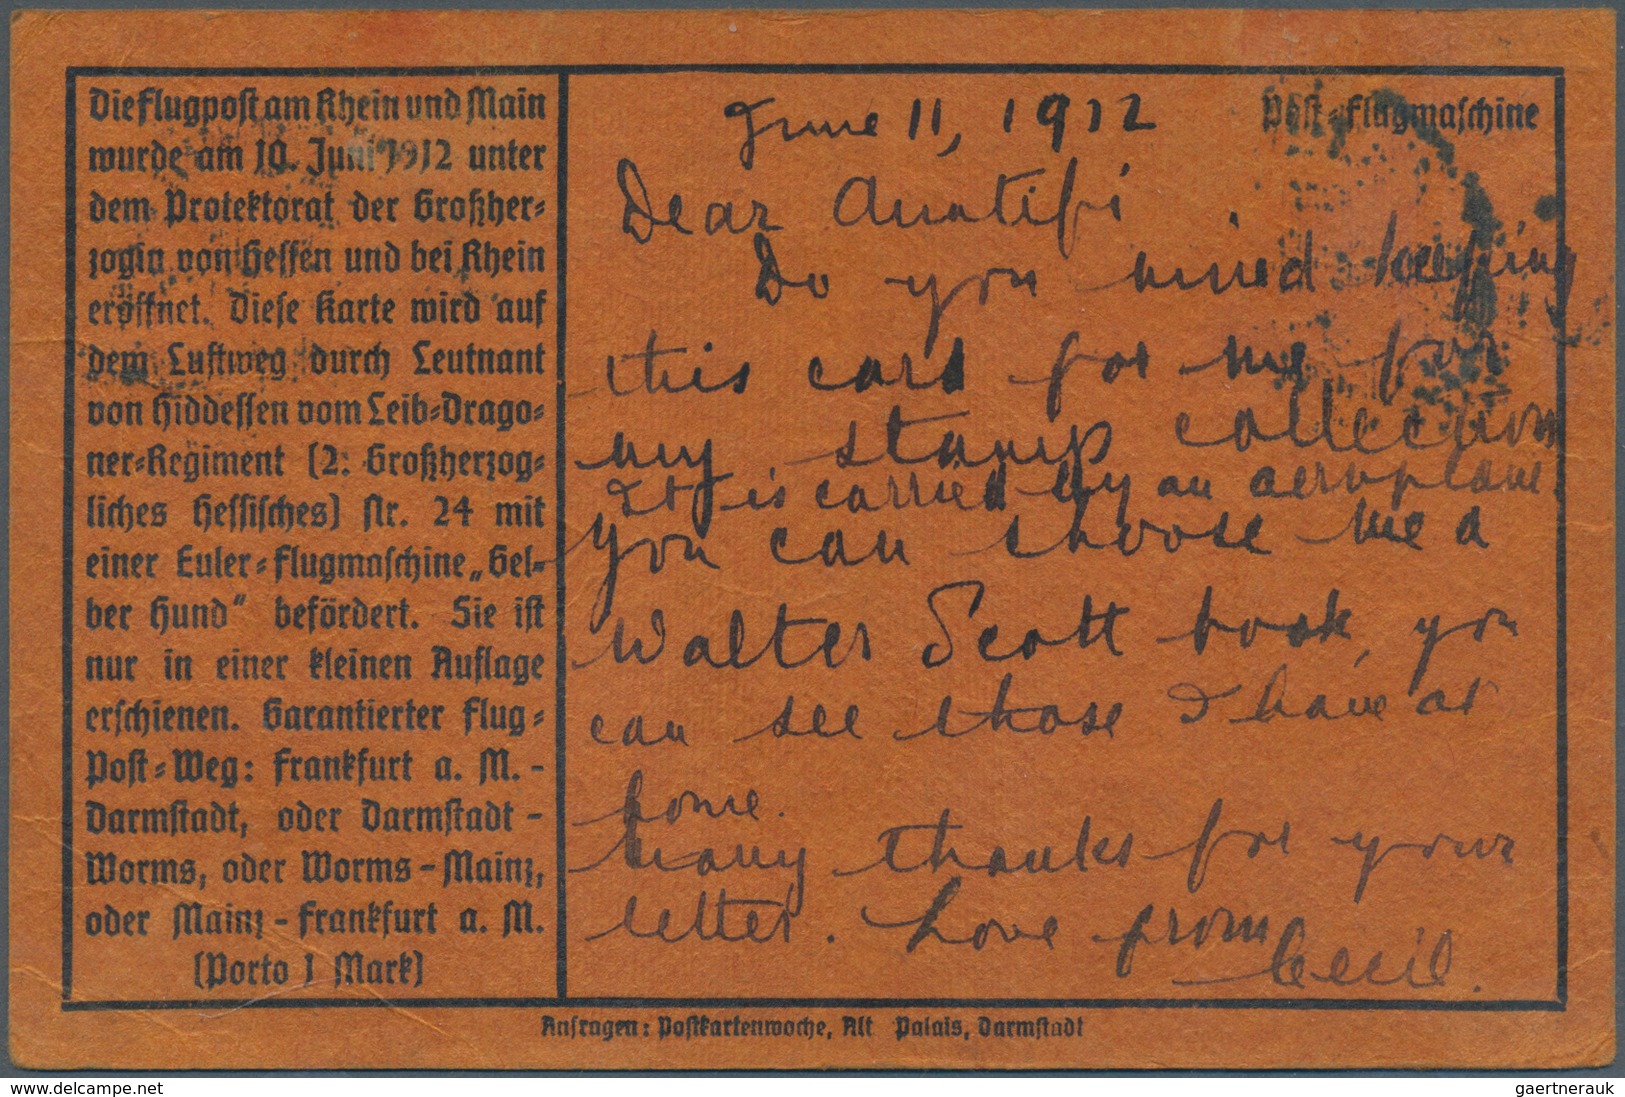 Die Flugpost am Rhein und Main
wurde am 10. Juni 1912 unter
dem Protektorat der Großher-
zogin von Hessen und bei Rhein
eröffnet. Diese Karte wird auf
dem Luftweg durch Leutnant
von Hiddessen vom Leib-Drago-
ner-Regiment (2. Großherzog-
liches Hessisches) Nr. 24 mit
einer Euler-Flugmaschine „Gel-
ber Hund“ befördert. Sie ist
nur in einer kleinen Auflage
erschienen. Garantierter Flug-
Post-Weg: Frankfurt a. M. -
Darmstadt, oder Darmstadt -
Worms, oder Worms - Mainz,
oder Mainz - Frankfurt a. M.
(Porto 1 Mark)
Post-Flugmaschine
June 11, 1912
Dear
Do you mind keeping
this card for me for
my stamp collection
It is carried by an aeroplane.
You can choose me a
Walter Scott book, you
can see those I have at
home.
Many thanks for your
letter. Love from
Cecil.
Anfragen: Postkartenwoche, Alt Palais, Darmstadt
delcampe.net
gaertnerauk